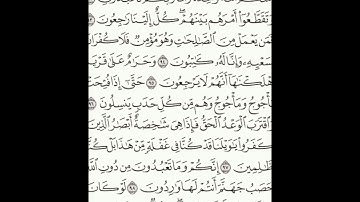 وَتَقَطَّعُوٓاْ أَمْرَهُم بَيْنَهُمْۖ كُلٌّ إِلَيْنَا رَٰجِعُونَ
فَمَن يَعْمَلْ مِنَ ٱلصَّٰلِحَٰتِ وَهُوَ مُؤْمِنٌ فَلَا كُفْرَانَ
لِسَعْيِهِۦ وَإِنَّا لَهُۥ كَٰتِبُونَ ٩٤ وَحَرَٰمٌ عَلَىٰ قَرْيَةٍ
أَهْلَكْنَٰهَآ أَنَّهُمْ لَا يَرْجِعُونَ ٩٥ حَتَّىٰٓ إِذَا فُتِحَتْ
يَأْجُوجُ وَمَأْجُوجُ وَهُم مِّن كُلِّ حَدَبٍ يَنسِلُونَ ٩٦
وَٱقْتَرَبَ ٱلْوَعْدُ ٱلْحَقُّ فَإِذَا هِىَ شَٰخِصَةٌ أَبْصَٰرُ ٱلَّذِينَ
كَفَرُواْ يَٰوَيْلَنَا قَدْ كُنَّا فِى غَفْلَةٍ مِّنْ هَٰذَا بَلْ كُنَّا
ظَٰلِمِينَ ٩٧ إِنَّكُمْ وَمَا تَعْبُدُونَ مِن دُونِ ٱللَّهِ
حَصَبُ جَهَنَّمَ أَنتُمْ لَهَا وَٰرِدُونَ ٩٨ لَوْ كَانَ